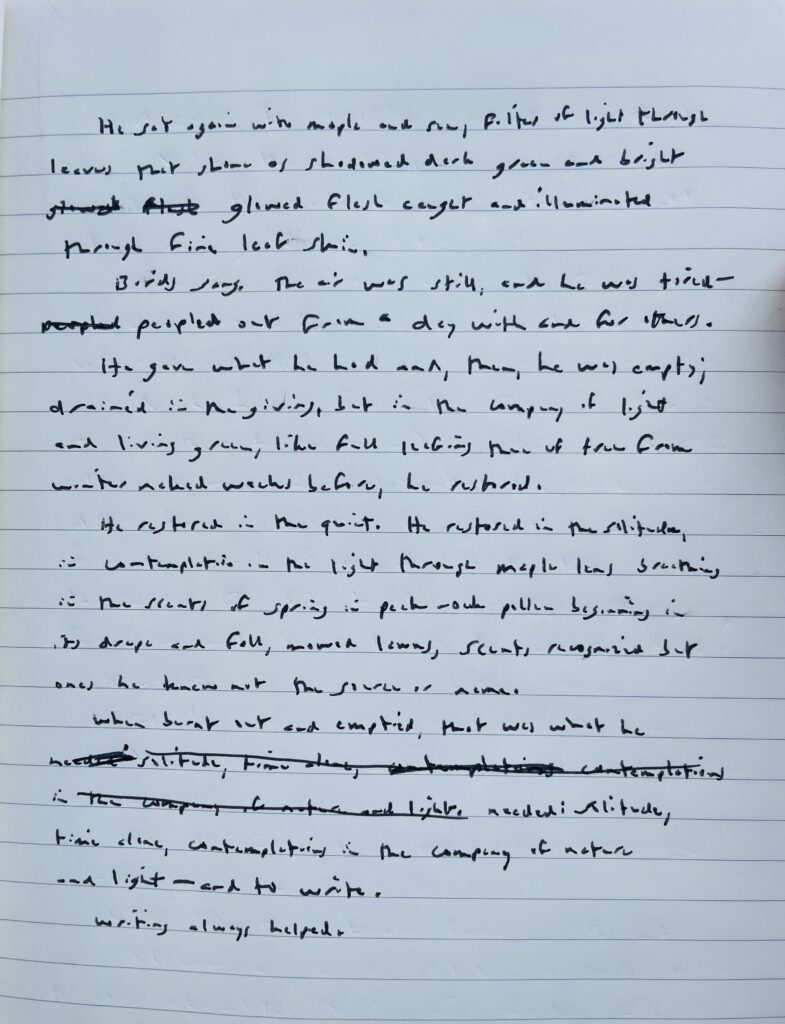 He sat again with maple and sun, filter of light through
leaves that shone of shadowed dark green and bright
glowed flesh glowed flesh caught and illuminated
through fine leaf skin.
Birds sang. The air was still, and he was tired—
peopled peopled out from a day with and for others.
He gave what he had and, then, he was empty;
drained in the giving, but in the company of light
and living green, like full leafing tree of tree from
winter naked weeks before, he restored.
He restored in the quiet. He restored in the solitude,
in contemplation in the light through maple leaves breathing
in the scents of spring in peak—oak pollen beginning in
its drape and fall, mowed lawns, scents recognized but
ones he knew not the source or name.
When burnt out and emptied, that was what he
needed solitude, time alone, contemplating contemplations
in the company of nature and light. needed: solitude,
time alone, contemplating in the company of nature
and light—and to write.
Writing always helped.